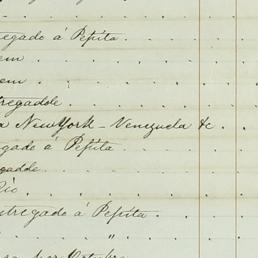 regado á Pepita.
em
em
tregadole.
a New York - Venezuela &c.
gado a Pepita
gadole
Rio
ntregado á Pepita.
"